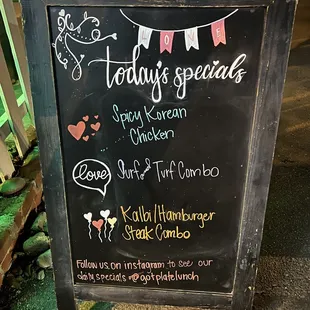 LOVE
today's specials
Spicy Korean
Chicken
love
Surf and Turf Combo
Kalbi/Hamburger
Steak Combo
Follow us on instagram to see our
daily specials @gotplatelunch